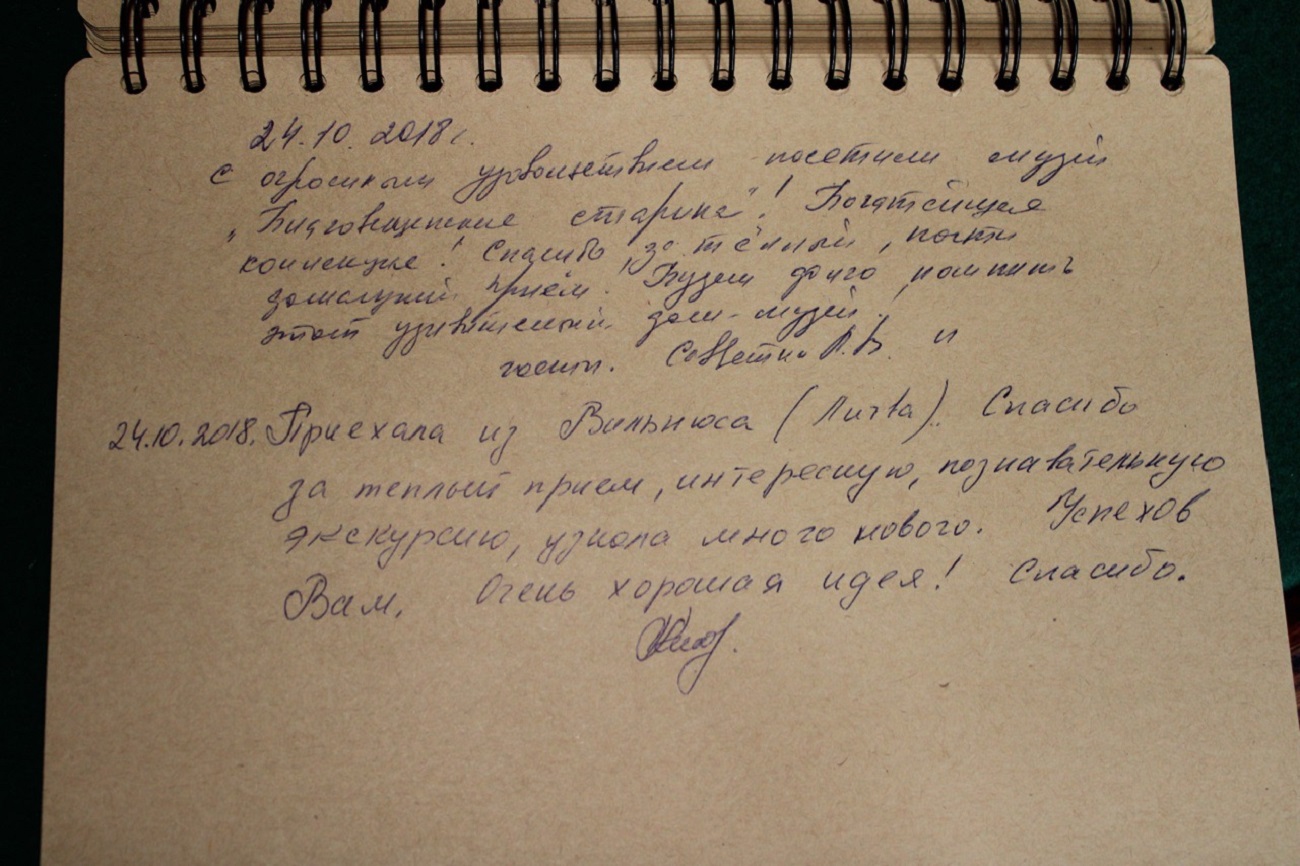 24.10.2018г.
С огромным удовольствием посетили музей
„Благовещенские старина"! Богатейшая
коллекция! Спасибо за тёплый, почти
домашний приём! Будем долго помнить
этот удивительный дом-музей!
гости. А.В. и
24.10.2018. Приехала из Вильнюса (Литва). Спасибо
за теплый прием, интересную, познавательную
экскурсию, узнала много нового. Успехов
Вам. Очень хорошая идея! Спасибо.